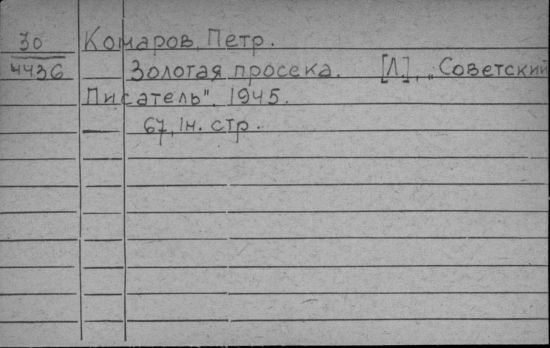 30 Комаров, Петр.
4436 Золотая просека. [Л.], „Советский
Писатель". 1945.
67, 1н. стр.